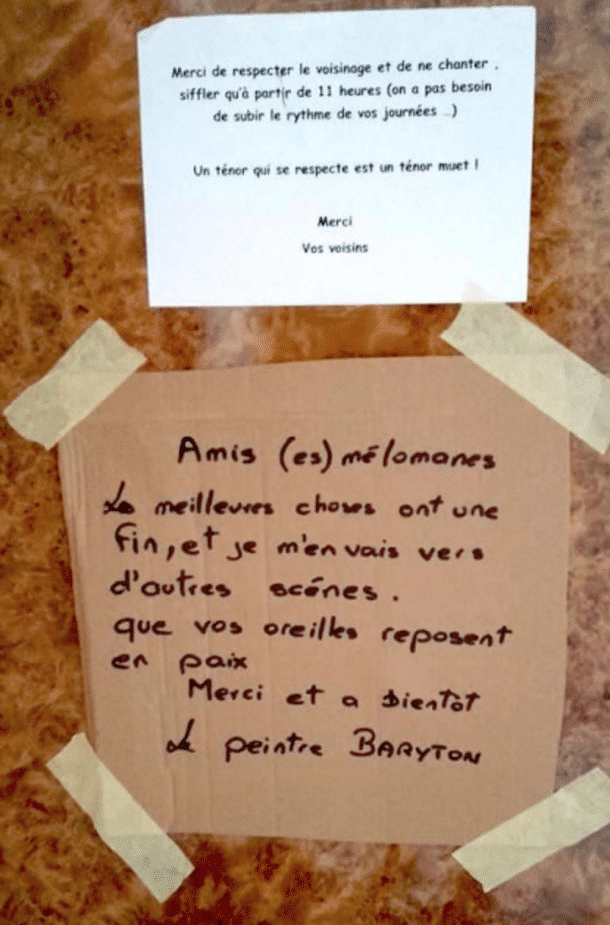 Merci de respecter le voisinage et de ne chanter ,
siffler qu'à partir de 11 heures (on a pas besoin
de subir le rythme de vos journées …)
Un ténor qui se respecte est un ténor muet !
Merci
Vos voisins
Amis (es) mélomanes
Les meilleures choses ont une
fin, et je m'en vais vers
d'autres scénes.
que vos oreilles reposent
en paix
Merci et a bientôt
Le peintre BARYTON